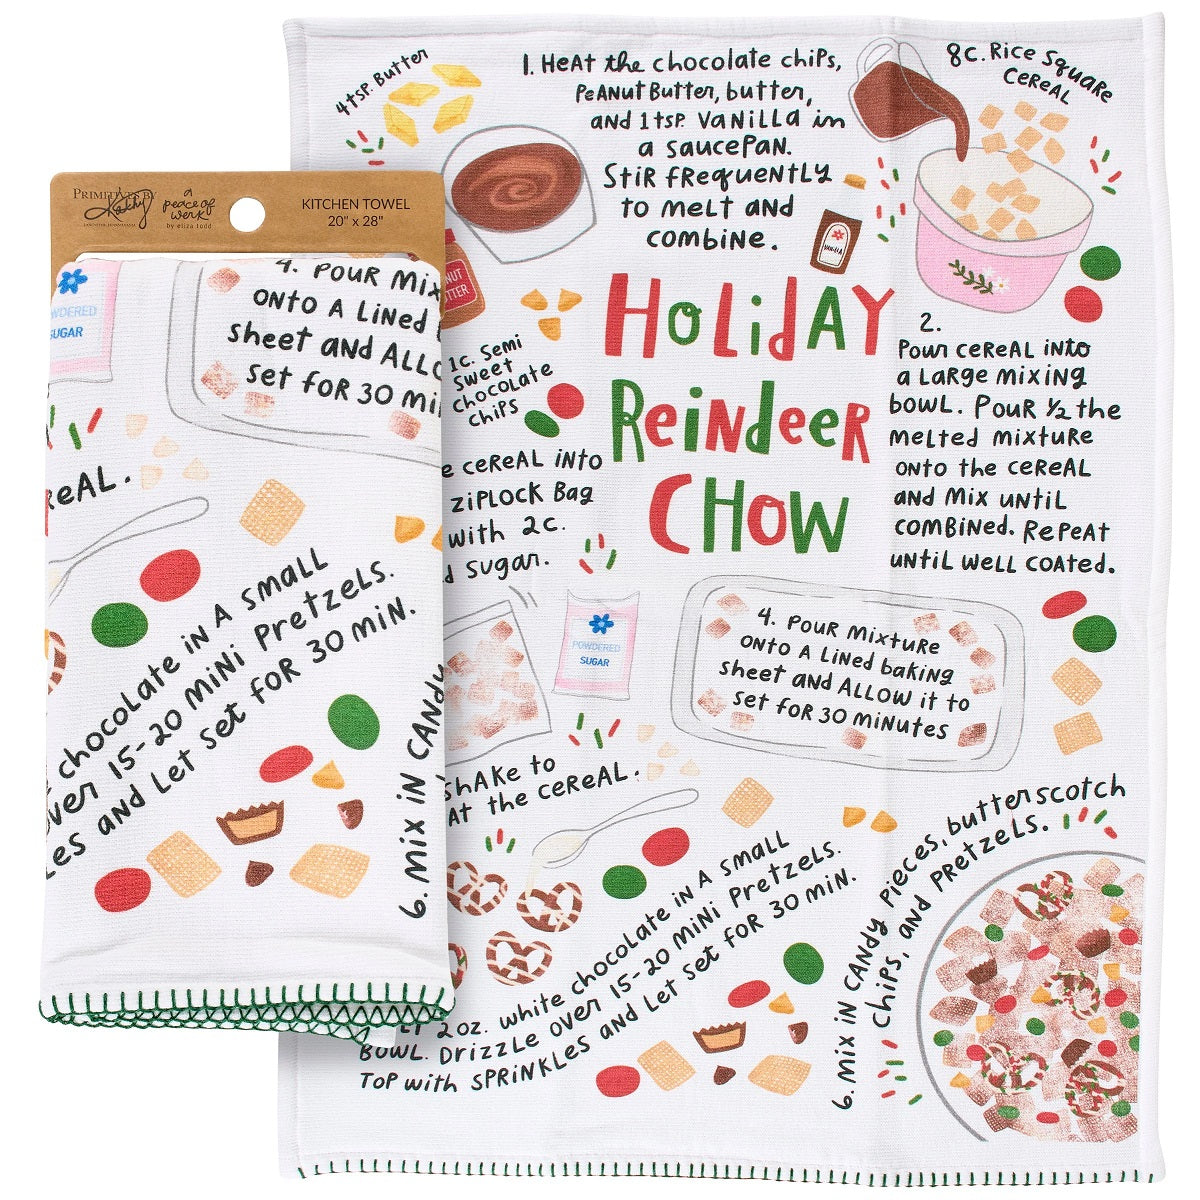 PRIMITIVES BY
Kathy
a
peace of
work
by eliza todd
KITCHEN TOWEL
20" x 28"
WDERED
SUGAR
4. POUR MIX
ONTO A LINED
Sheet AND ALLO
Set FOR 30 MI
ReAL.
chocolate iN A SMALL
Over 15-20 MiNi Pretzels.
Les AND Let Set FOR 30 MiN.
6. Mix iN CANDY
4 tSP. Butter
1. HeAt the chocolate chiPs,
PeANut Butter, butter,
AND 1 tSP. VANiLLA in
A SAUCePAN.
StiR FRequentLy
to Melt AND
COMbiNe.
VANILLA
8C. Rice SquARe
CeReAL
NUT
TTER
1C. Semi
Sweet
Chocolate
ChiPs
HOLiDAY
ReiNDeeR
CHOW
2.
Pour CeReAL iNto
A LARGe MixiNg
bOWL. POUR ½ the
MeLted MixtuRe
ONto the CeReAL
AND Mix UNtiL
COMbiNed. RePeAt
UNtiL weLL COAted.
e CeReAL iNto
ZiPLOCK BAg
with 2C.
d SugAR.
POWDERED
SUGAR
4. POUR MixtuRe
ONTO A LiNeD bAKiNg
Sheet AND ALLOW it to
Set FOR 30 MiNutes
ShAKe to
At the CeReAL.
LT 2 OZ. white chocolate iN A SMALL
BOWL. DRiZZLe OVeR 15-20 MiNi Pretzels.
TOP with SPRiNKLes AND Let Set FOR 30 MiN.
6. Mix iN CANDY Pieces, butterscotch
ChiPs, AND PRetzeLs.